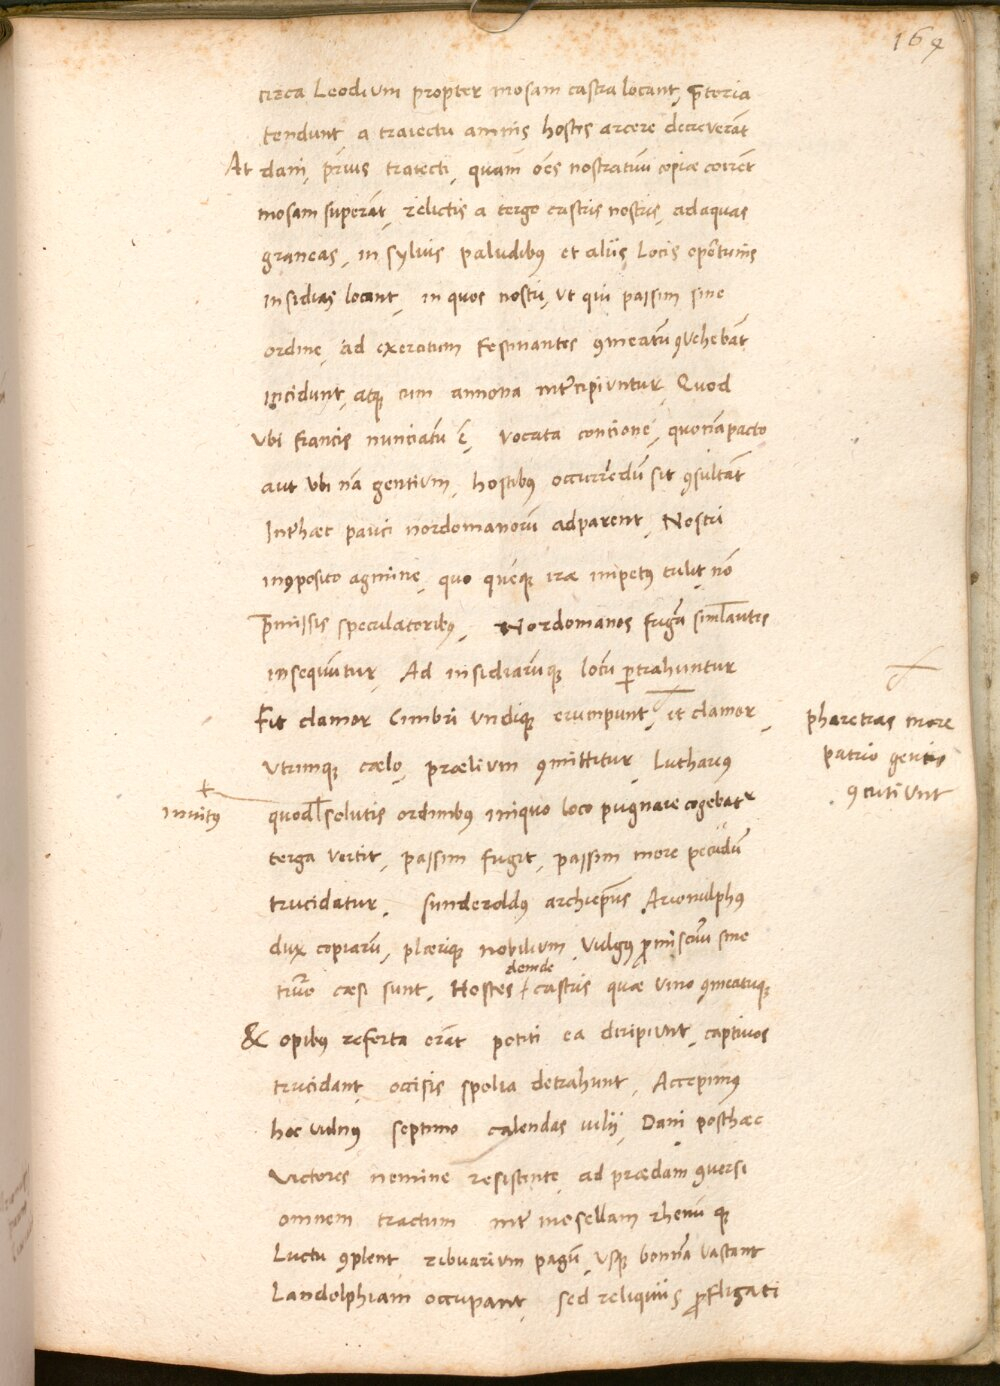 169
circa Leodium propter mosam castra locant, p̄toria
tendunt a traiectu amnis hostes arcere decreverāt
At dani, prius traiecti, quam oēs nostratūu copiæ coirēt
mosam superāt, relictis a tergo castris nostris, ad aquas
graneas, in sylvis paludibꝰ et aliis Locis opōrtunis
insidias locant, in quos nostri, ut qui passim sine
ordine, ad exercitum festinantes ꝯmeatū ꝯvehebāt
incidunt, atqꝫ cum annona intʼcipiuntur, Quod
Ubi francis nunciatū ē, vocata concione, quonāpacto
aut ubi nā gentium, hostibꝰ occurrēdū sit ꝯsultāt
Intʼhæc pauci nordomanorū adparent, Nostri
inꝯposito agmine, quo quēqꝫ iræ impetꝰ tulit, nō
p̄missis speculatoribꝰ, Nordomanos fugā siml̄antes
insequūtur, Ad insidiarūqꝫ locū ꝑtrahuntur
Fit clamor Cimbri undiqꝫ erumpunt, it clamor,
pharetras more
patrio gentis
ꝯcutiunt
Utrimqꝫ cælo, prælium ꝯmittitur, Lutharius
invitꝰ
quod solutis ordinibꝰ iniquo loco pugnare cogebatʳ
terga vertit, passim fugit, passim more pecudū
trucidatur, Sunderoldꝰ archiep̄us Arvonulphꝰ
dux copiarū, plæriqꝫ nobilium, Vulgꝰ ꝓmiscuū sine
deinde
castris quæ vino ꝯmeatuqꝫ
& opibꝰ referta erāt potiti ea diripiunt, captivos
trucidant, occisis spolia detrahunt, Accepimꝰ
hoc vulnꝰ septimo calendas iulii, Dani posthæc
victores nemine resistente, ad prædam ꝯversi
omnem tractum intʼ mosellam rhenū qꝫ
Luctu ꝯplent ribuarium pagū, usqꝫ bonnā vastant
Landolphiam occupant, sed reliquiis ꝓfligati